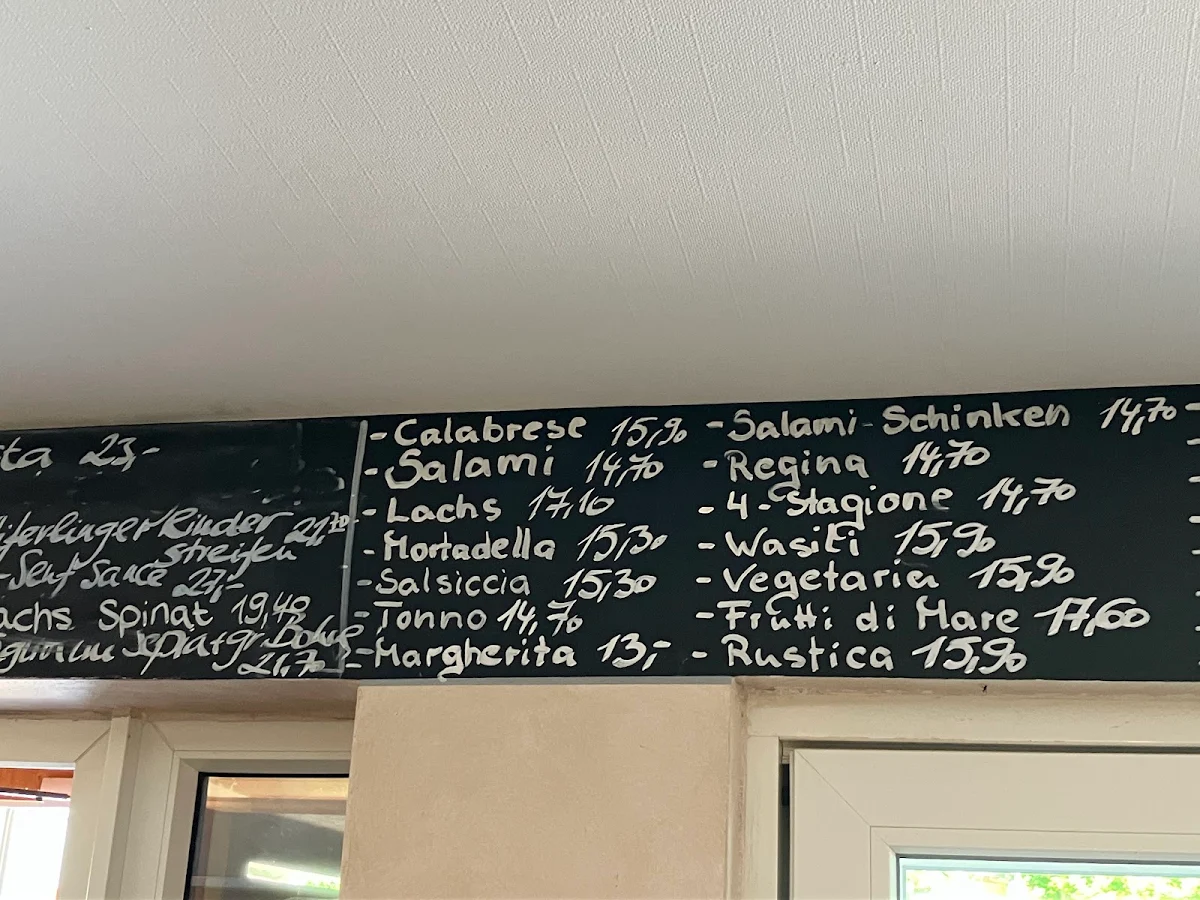 ta 23,-
Pfifferlinger Rinder 21,70
streifen
-Senf Sauce 27,-
achs Spinat 19,40
21,70
- Calabrese 15,90
- Salami 14,70
- Lachs 17,10
- Mortadella 15,30
- Salsiccia 15,30
- Tonno 14,70
- Margherita 13,-
- Salami-Schinken 14,70
- Regina 14,70
- 4-Stagione 14,70
- Wasili 15,90
- Vegetaria 15,90
- Frutti di Mare 17,60
- Rustica 15,90